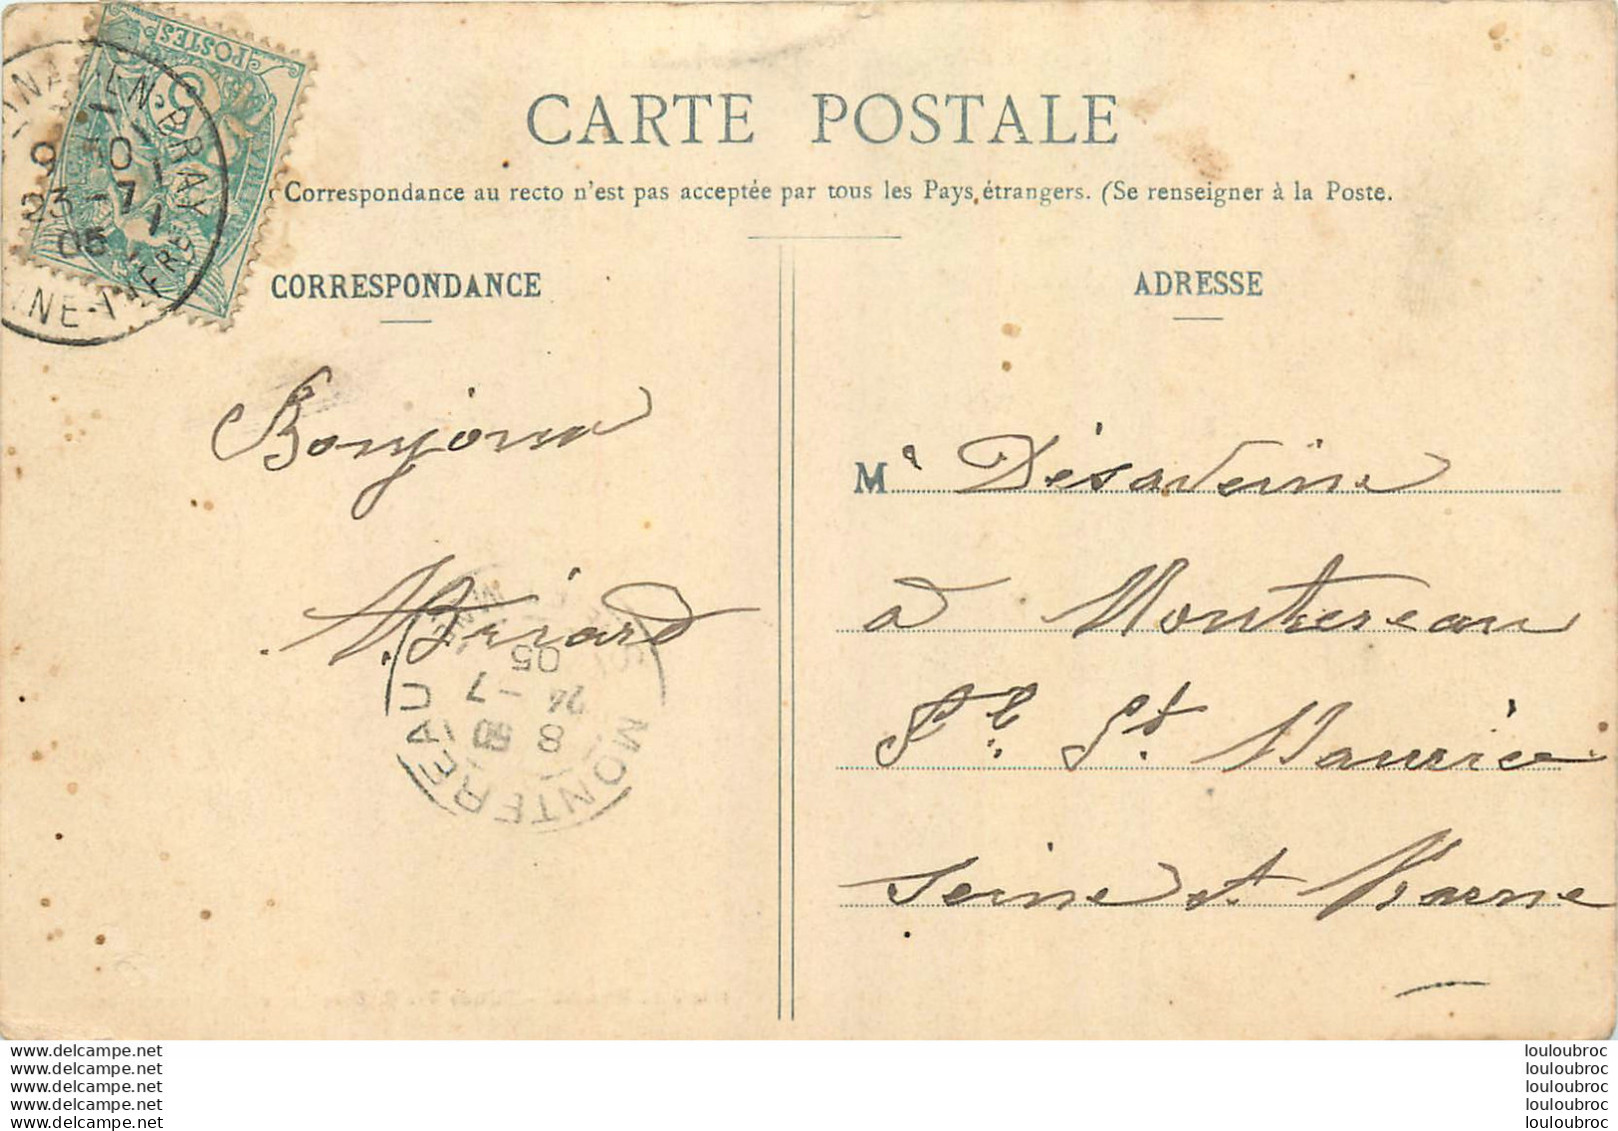 POSTES
9 10
23 -7
05
CARTE POSTALE
Correspondance au recto n'est pas acceptée par tous les Pays étrangers. (Se renseigner à la Poste.
CORRESPONDANCE
ADRESSE
Bonjour
MONTEREAU
8 50
24 -7
05
Mr Désaveine
à Montereau
Fg St Maurice
Seine et Marne
www.delcampe.net
www.delcampe.net
www.delcampe.net
www.delcampe.net
www.delcampe.net
louloubroc
louloubroc
louloubroc
louloubroc
louloubroc